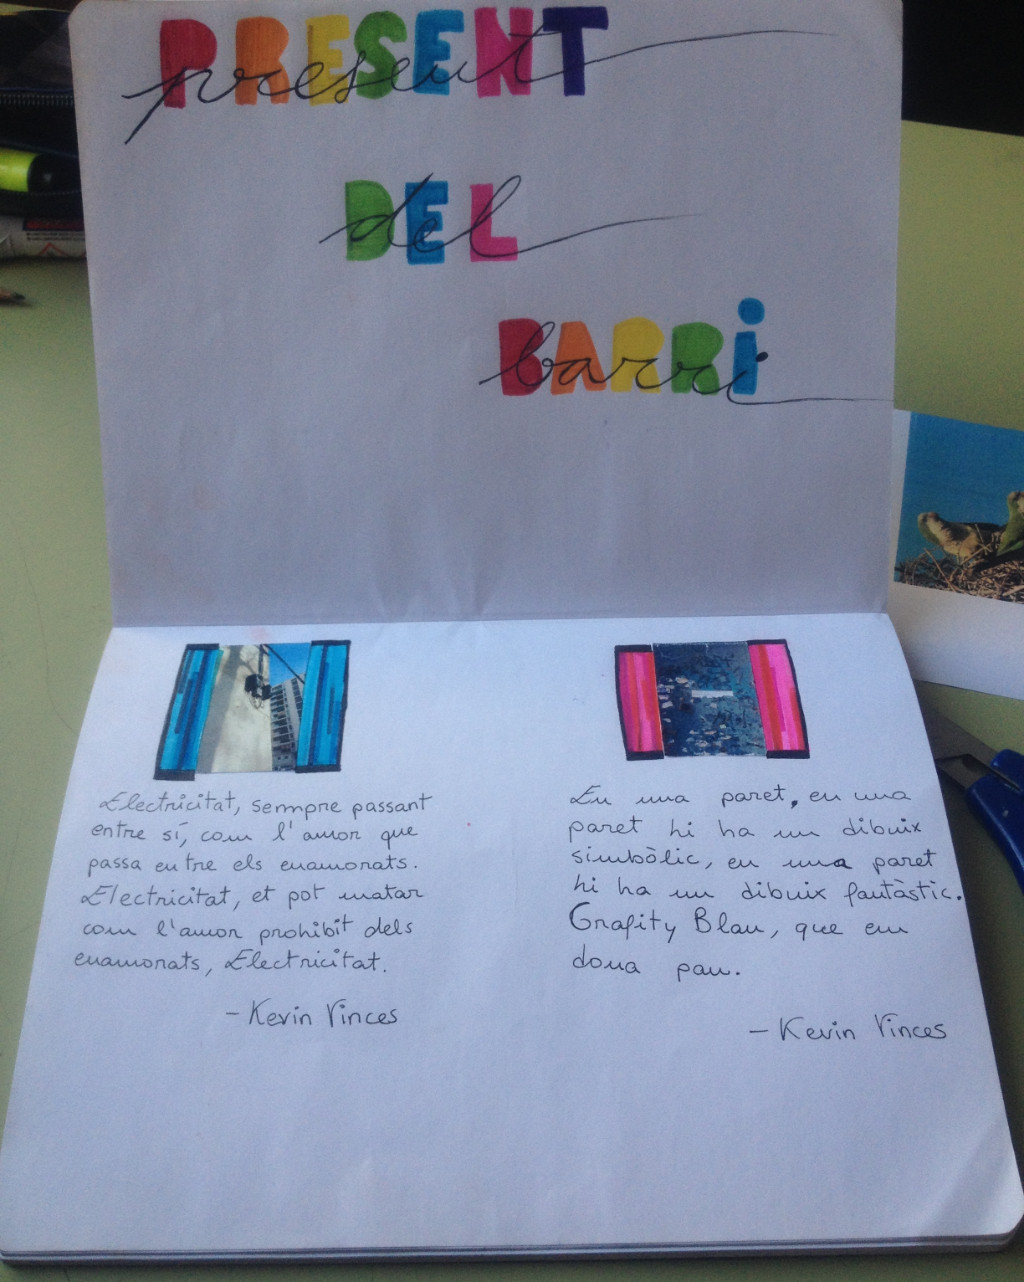 PRESENT
present
DEL
del
BARRI
barri
Electricitat, sempre passant
entre sí, com l'amor que
passa entre els enamorats.
Electricitat, et pot matar
com l'amor prohibit dels
enamorats, Electricitat.
- Kevin Vinces
En una paret, en una
paret hi ha un dibuix
simbòlic, en una paret
hi ha un dibuix fantàstic.
Grafity Blau, que em
dona pau.
- Kevin Vinces